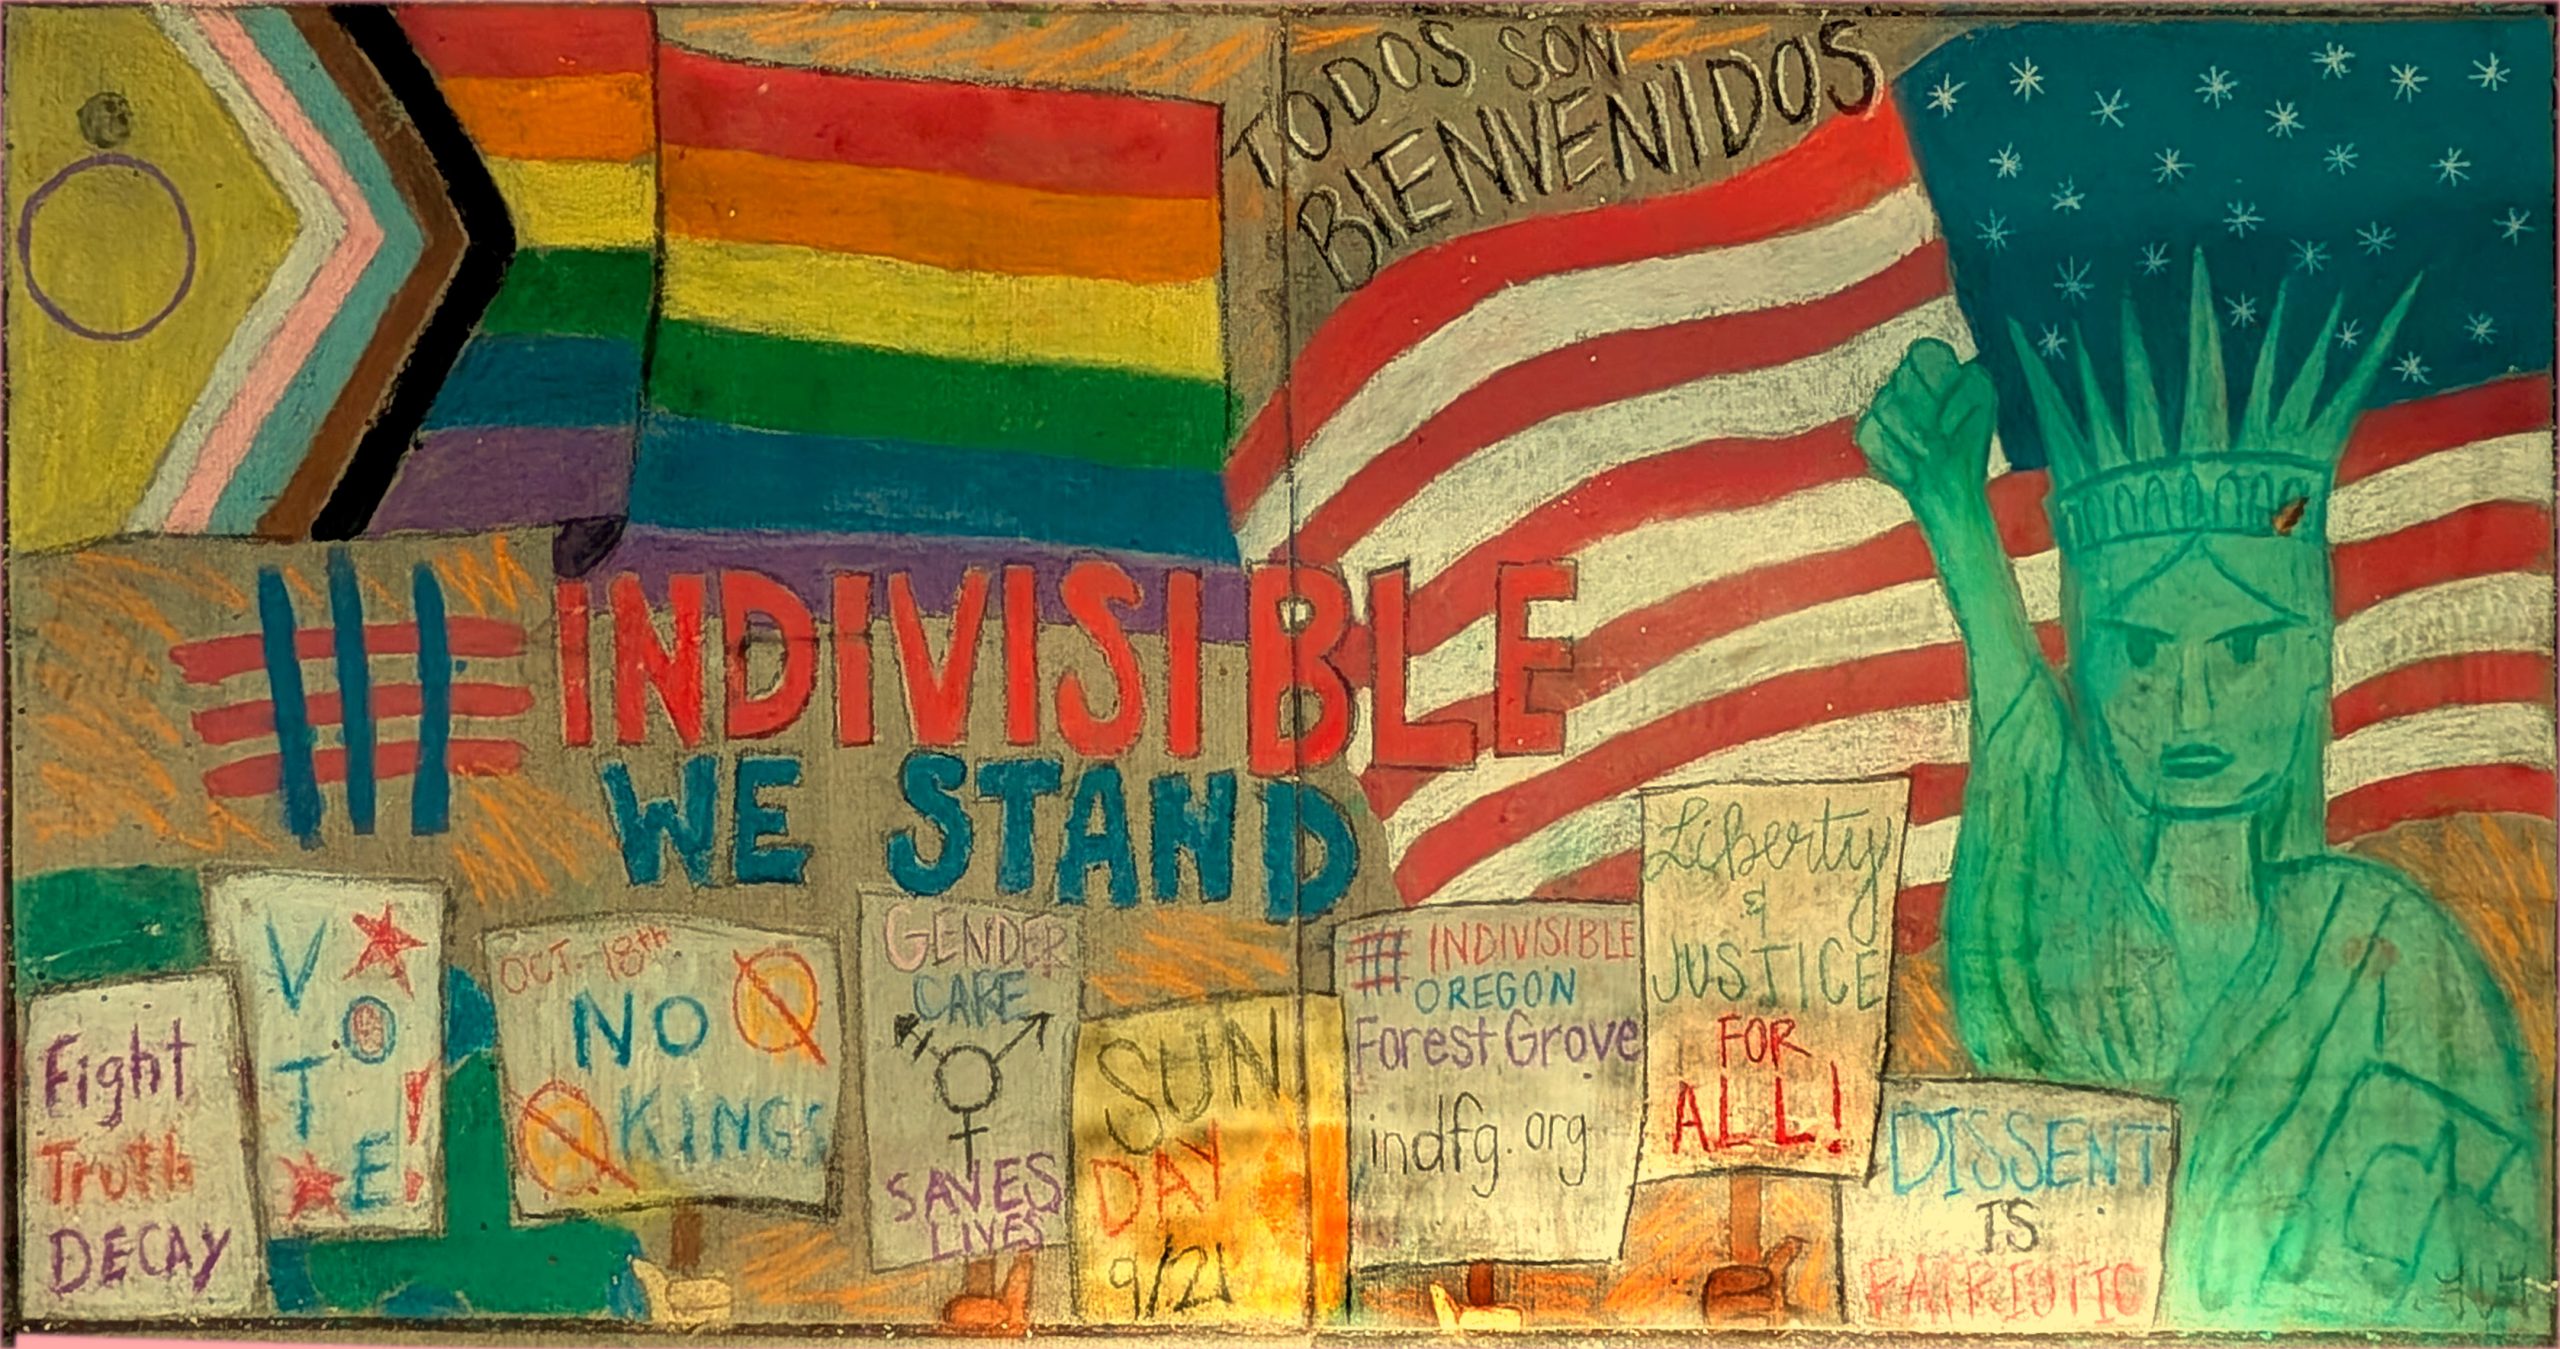 TODOS SON
BIENVENIDOS
INDIVISIBLE
WE STAND
Fight
Truth
DECAY
VOTE!
OCT. 18th
NO
KINGS
GENDER
CARE
SAVES
LIVES
SUN
DAY
9/21
INDIVISIBLE
OREGON
Forest Grove
indfg.org
Liberty
&
JUSTICE
FOR
ALL!
DISSENT
IS
PATRIOTIC